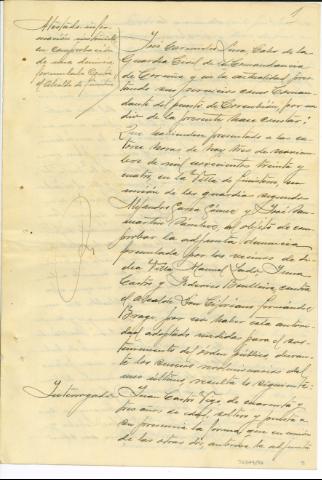 1
Atestado infor-
mación instruido
en comprobación
de una denuncia
formulada contra
el Alcalde de Finisterre
José Cernadas, Cabo de la
Guardia Civil de la Comandancia
de Coruña y en la actualidad pres-
tando sus servicios como Coman-
dante del puesto de Corcubión, por me-
dio de la presente hace constar:
Que habiéndose presentado a las ca-
torce horas de hoy tres de noviem-
bre de mil novecientos treinta y
cuatro, en la Villa de Finisterre, en
unión de los guardias segundos
Alejandro García Gómez y José San-
martín Sánchez, al objeto de com-
probar la adjunta denuncia
formulada por los vecinos de di-
cha Villa, Manuel Lado, Juan
Castro y Federico Benlliure, contra
el Alcalde Don Cibriano Fernández
Braga por no haber esta autori-
dad adoptado medidas para el sos-
tenimiento del orden público duran-
te los sucesos revolucionarios del
mes último, resulta lo siguiente:
Interrogado Juan Castro Vigo, de cuarenta y
tres años de edad, soltero y puesta a
su presencia la firma que en unión
de los otros dos, autoriza la adjunta